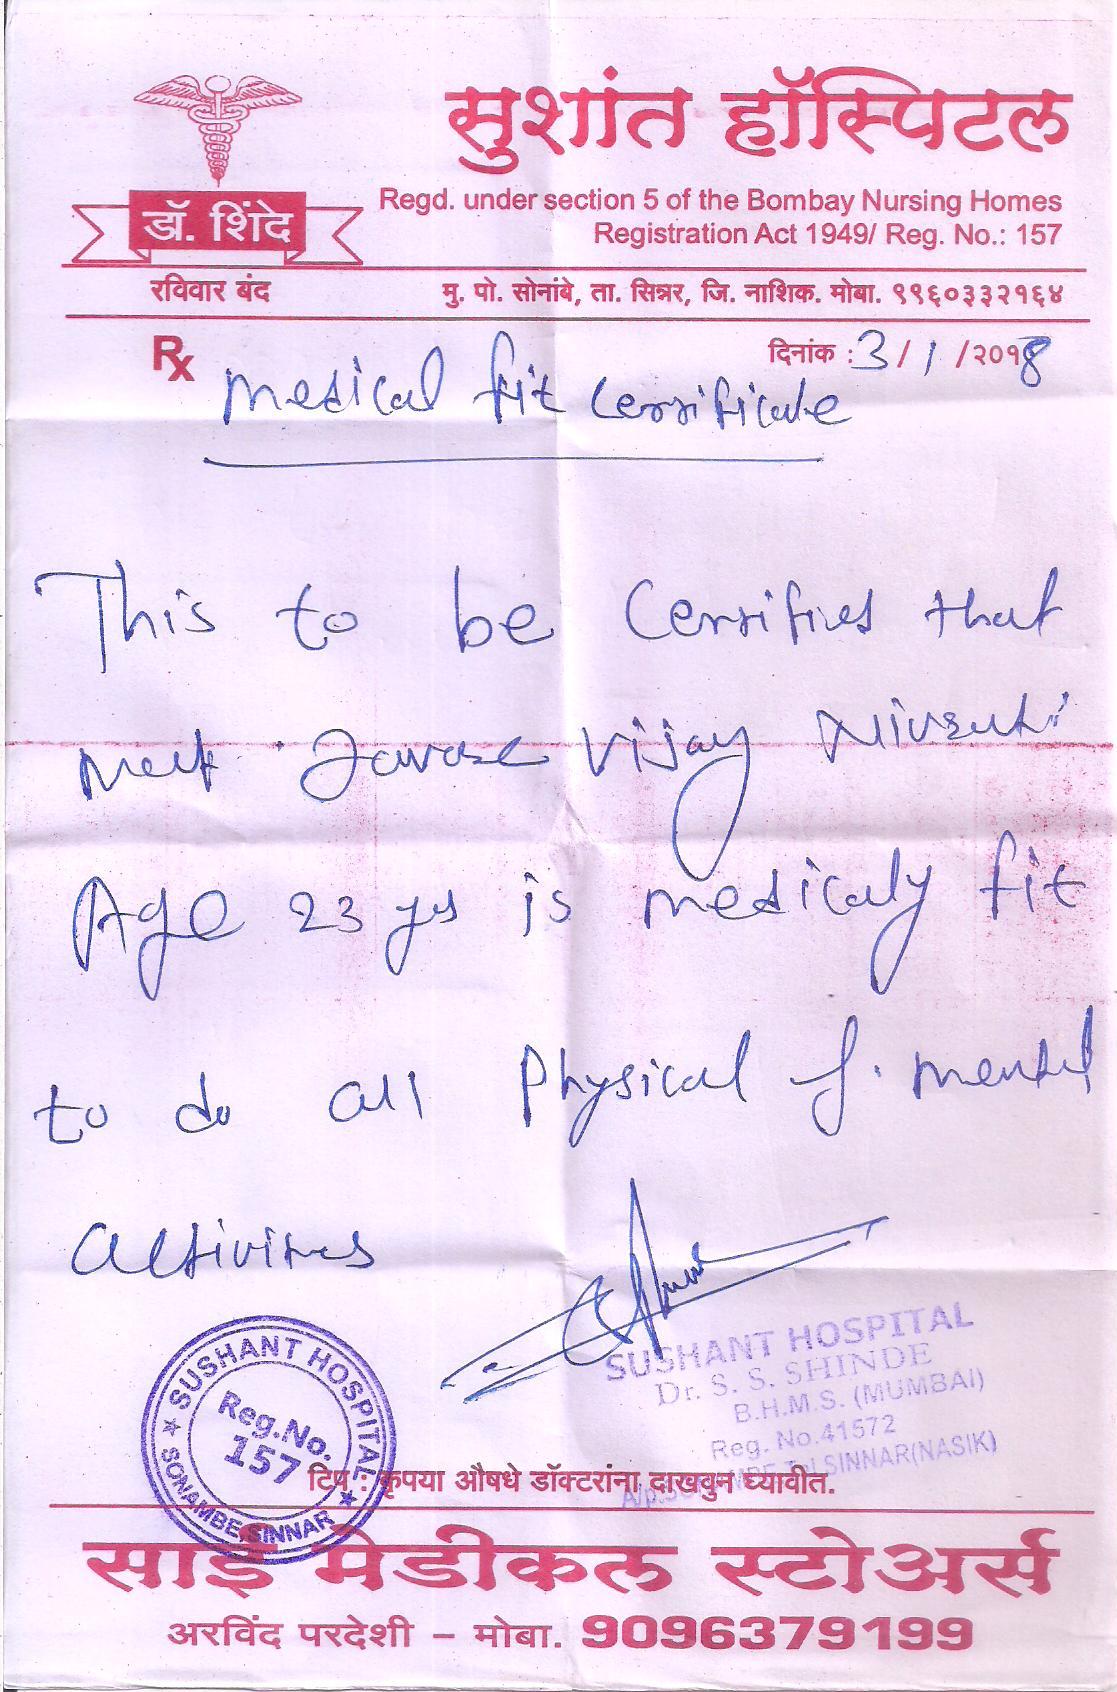 सुशांत हॉस्पिटल
डॉ. शिंदे
Regd. under section 5 of the Bombay Nursing Homes
Registration Act 1949/ Reg. No.: 157
रविवार बंद
मु. पो. सोनांबे, ता. सिन्नर, जि. नाशिक. मोबा. ९९६०३३२१६४
Rx
दिनांक : 3/1/२०१8
Medical fit Cerrificate
This to be Cerrifies that
Vijay Nivruti
Age 23 yrs is medicaly fit
to do all Physical & mental
activities
SUSHANT HOSPITAL
Dr. S. S. SHINDE
B.H.M.S. (MUMBAI)
Reg. No.41572
SINNAR(NASIK)
SUSHANT HOSPITAL
Reg.No.
157
SONAMBE,SINNAR
टिप : कृपया औषधे डॉक्टरांना दाखवुन घ्यावीत.
साई मेडीकल स्टोअर्स
अरविंद परदेशी – मोबा. 9096379199